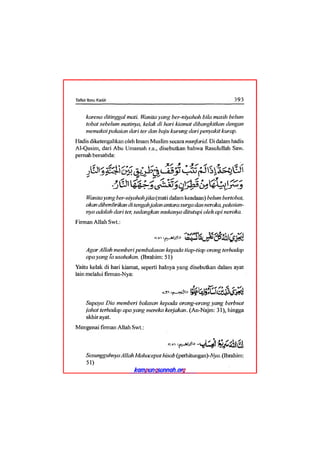 Tafsir Ibnu Kasir 393
karena ditinggal mati. Wanita yang ber-niyahah bila masih belum
tobat sebelum matinya, kelak di hari kiamat dibangkitkan dengan
memakai pakaian dari ter dan baju kurung dari penyakit kurap.
Hadis diketengahkan oleh Imam Muslim secara munfarid. Di dalam hadis
Al-Qasim, dari Abu Umamah r.a., disebutkan bahwa Rasulullah Saw.
pernah bersabda:
Wanita yang ber-niyahah jika (mati dalam keadaan) belum bertobat,
akan diberdirikan di tengah jalan antara surga dan neraka, pakaian-
nya adalah dari ter, sedangkan mukanya ditutupi oleh api neraka.
Firman Allah Swt.:
Agar Allah memberi pembalasan kepada tiap-tiap orang terhadap
apa yang ia usahakan. (Ibrahim: 51)
Yaitu kelak di hari kiamat, seperti halnya yang disebutkan dalam ayat
lain melalui firman-Nya:
Supaya Dia memberi balasan kepada orang-orang yang berbuat
jahat terhadap apa yang mereka kerjakan. (An-Najm: 31), hingga
akhir ayat.
Mengenai firman Allah Swt.:
Sesungguhnya Allah Mahacepat hisab (perhitungan)-Nya. (Ibrahim:
51)
kampungsunnah.org